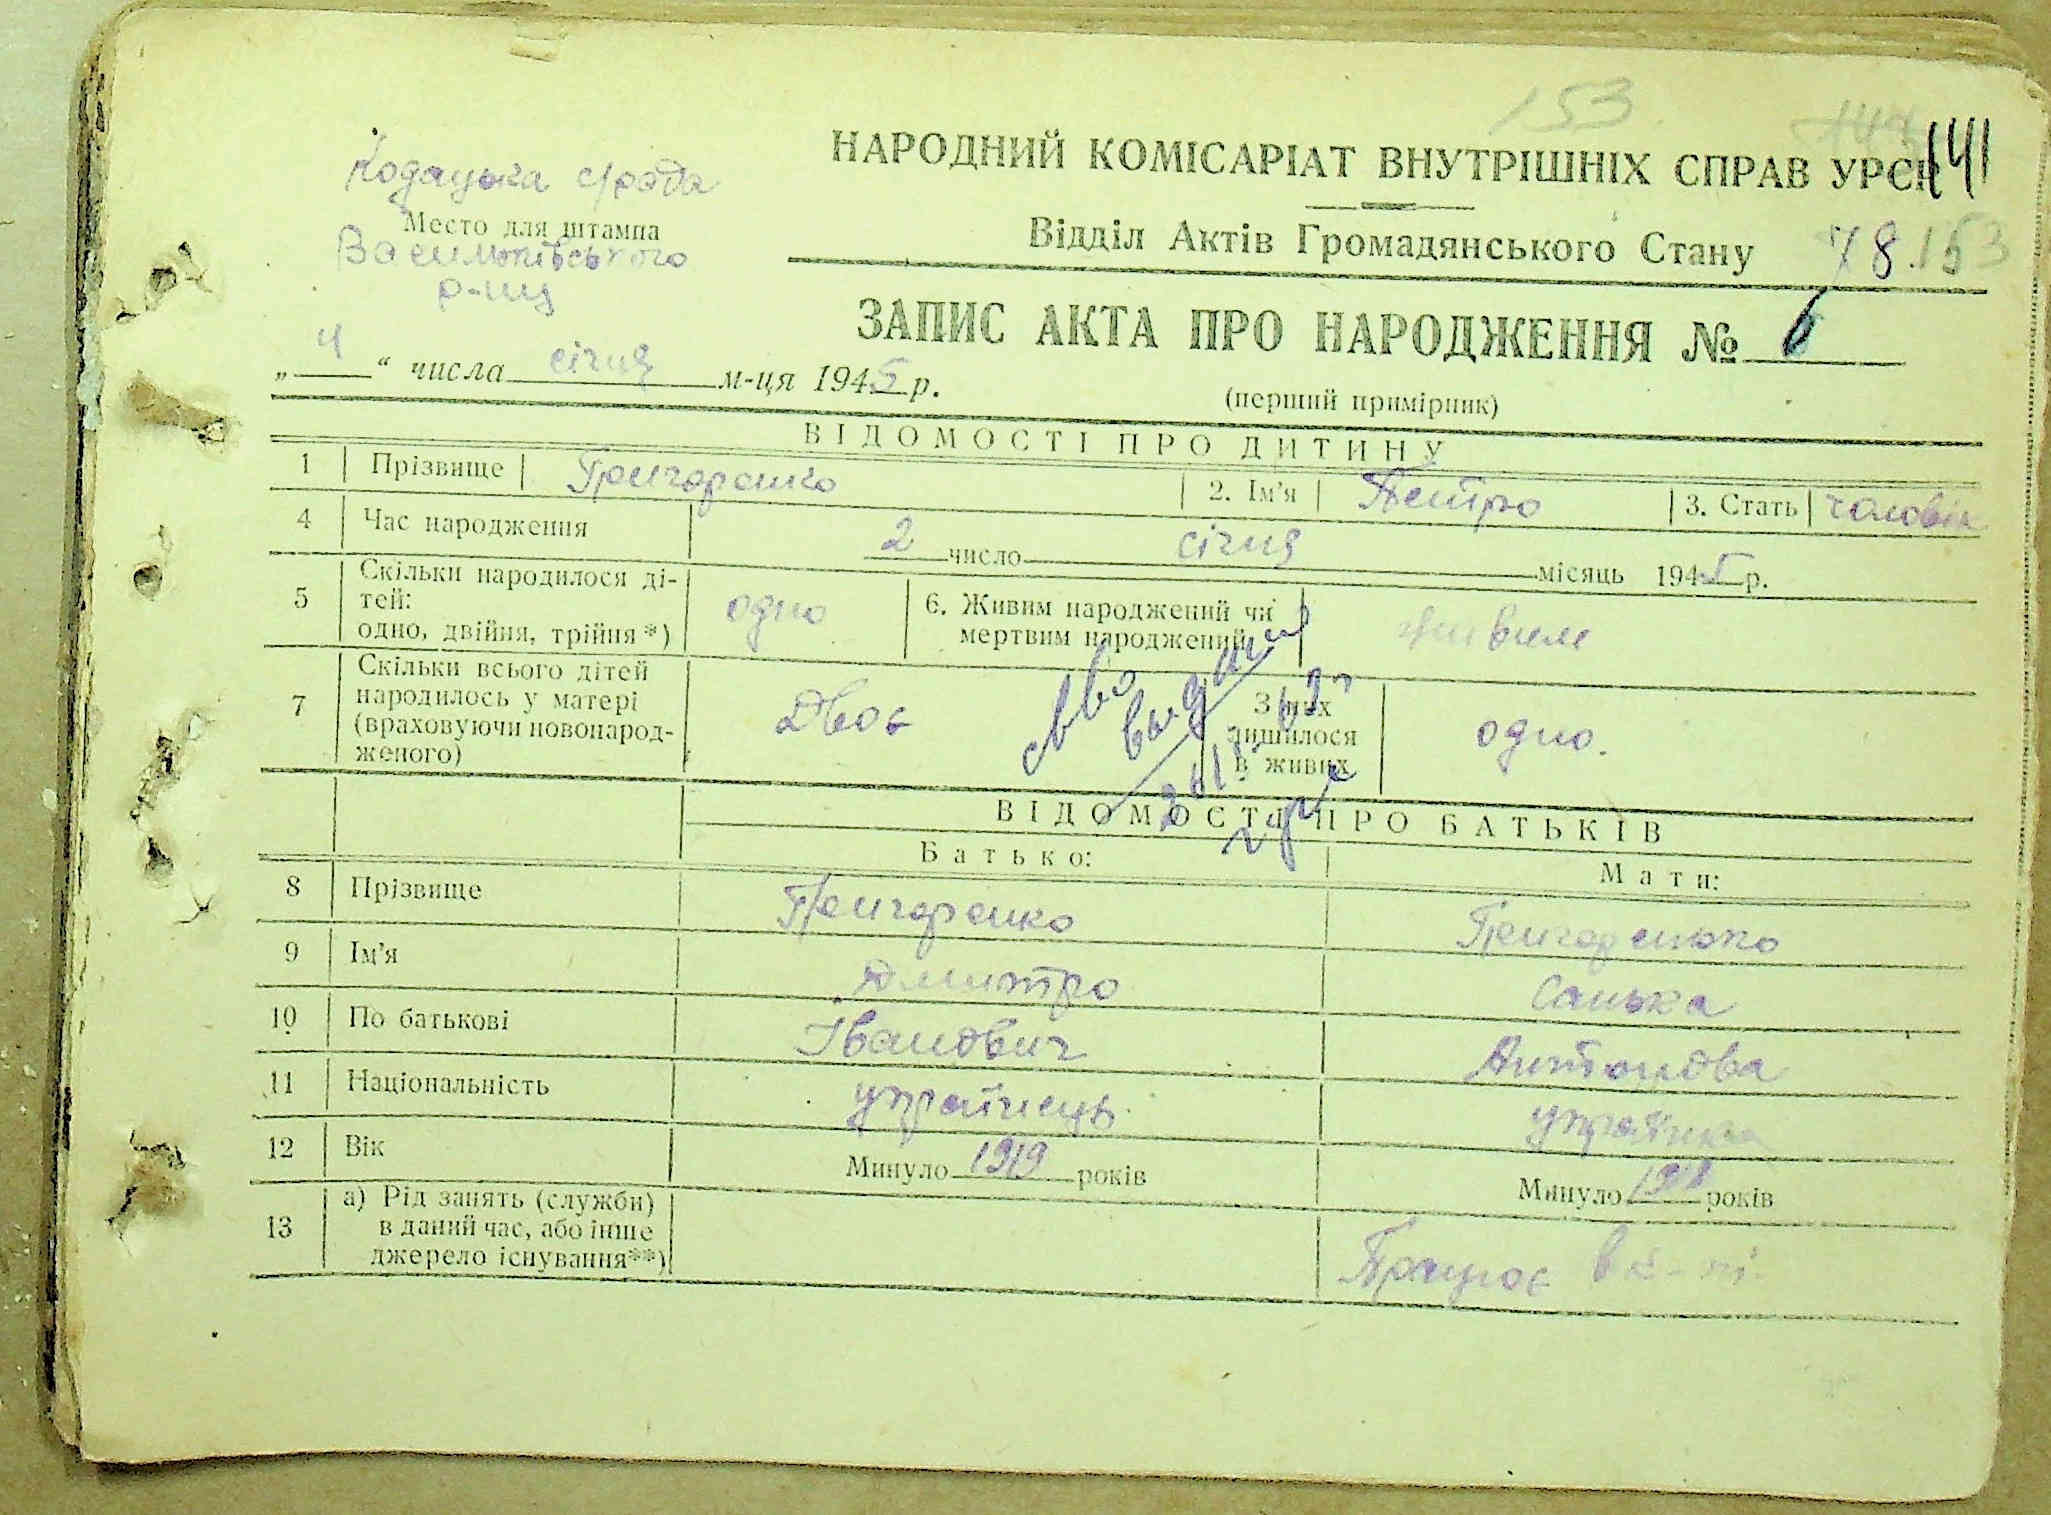 153
НАРОДНИЙ КОМІСАРІАТ ВНУТРІШНІХ СПРАВ УРСР 141
Кодацька с/рада
Место для штампа
Васильківського
р-ну
Відділ Актів Громадянського Стану 78 153
ЗАПИС АКТА ПРО НАРОДЖЕННЯ № 6
„ 4 “ числа січня м-ця 1945 р.
(перший примірник)
ВІДОМОСТІ ПРО ДИТИНУ
1 Прізвище Григоренко 2. Ім'я Петро 3. Стать чоловік
4 Час народження 2 число січня місяць 1945 р.
5 Скільки народилося ді-
тей:
одно, двійня, трійня*) одно 6. Живим народжений чи
мертвим народжений живим
7 Скільки всього дітей
народилось у матері
(враховуючи новонарод-
женого) двоє З них
лишилося
в живих одно.
св-во
выдано
ВІДОМОСТІ ПРО БАТЬКІВ
Батько: Мати:
8 Прізвище Григоренко Григоренко
9 Ім'я Дмитро Санька
10 По батькові Іванович Антонова
11 Національність українець українка
12 Вік Минуло 1919 років Минуло років
13 а) Рід занять (служби)
в даний час, або інше
джерело існування**) Працює в к-пі